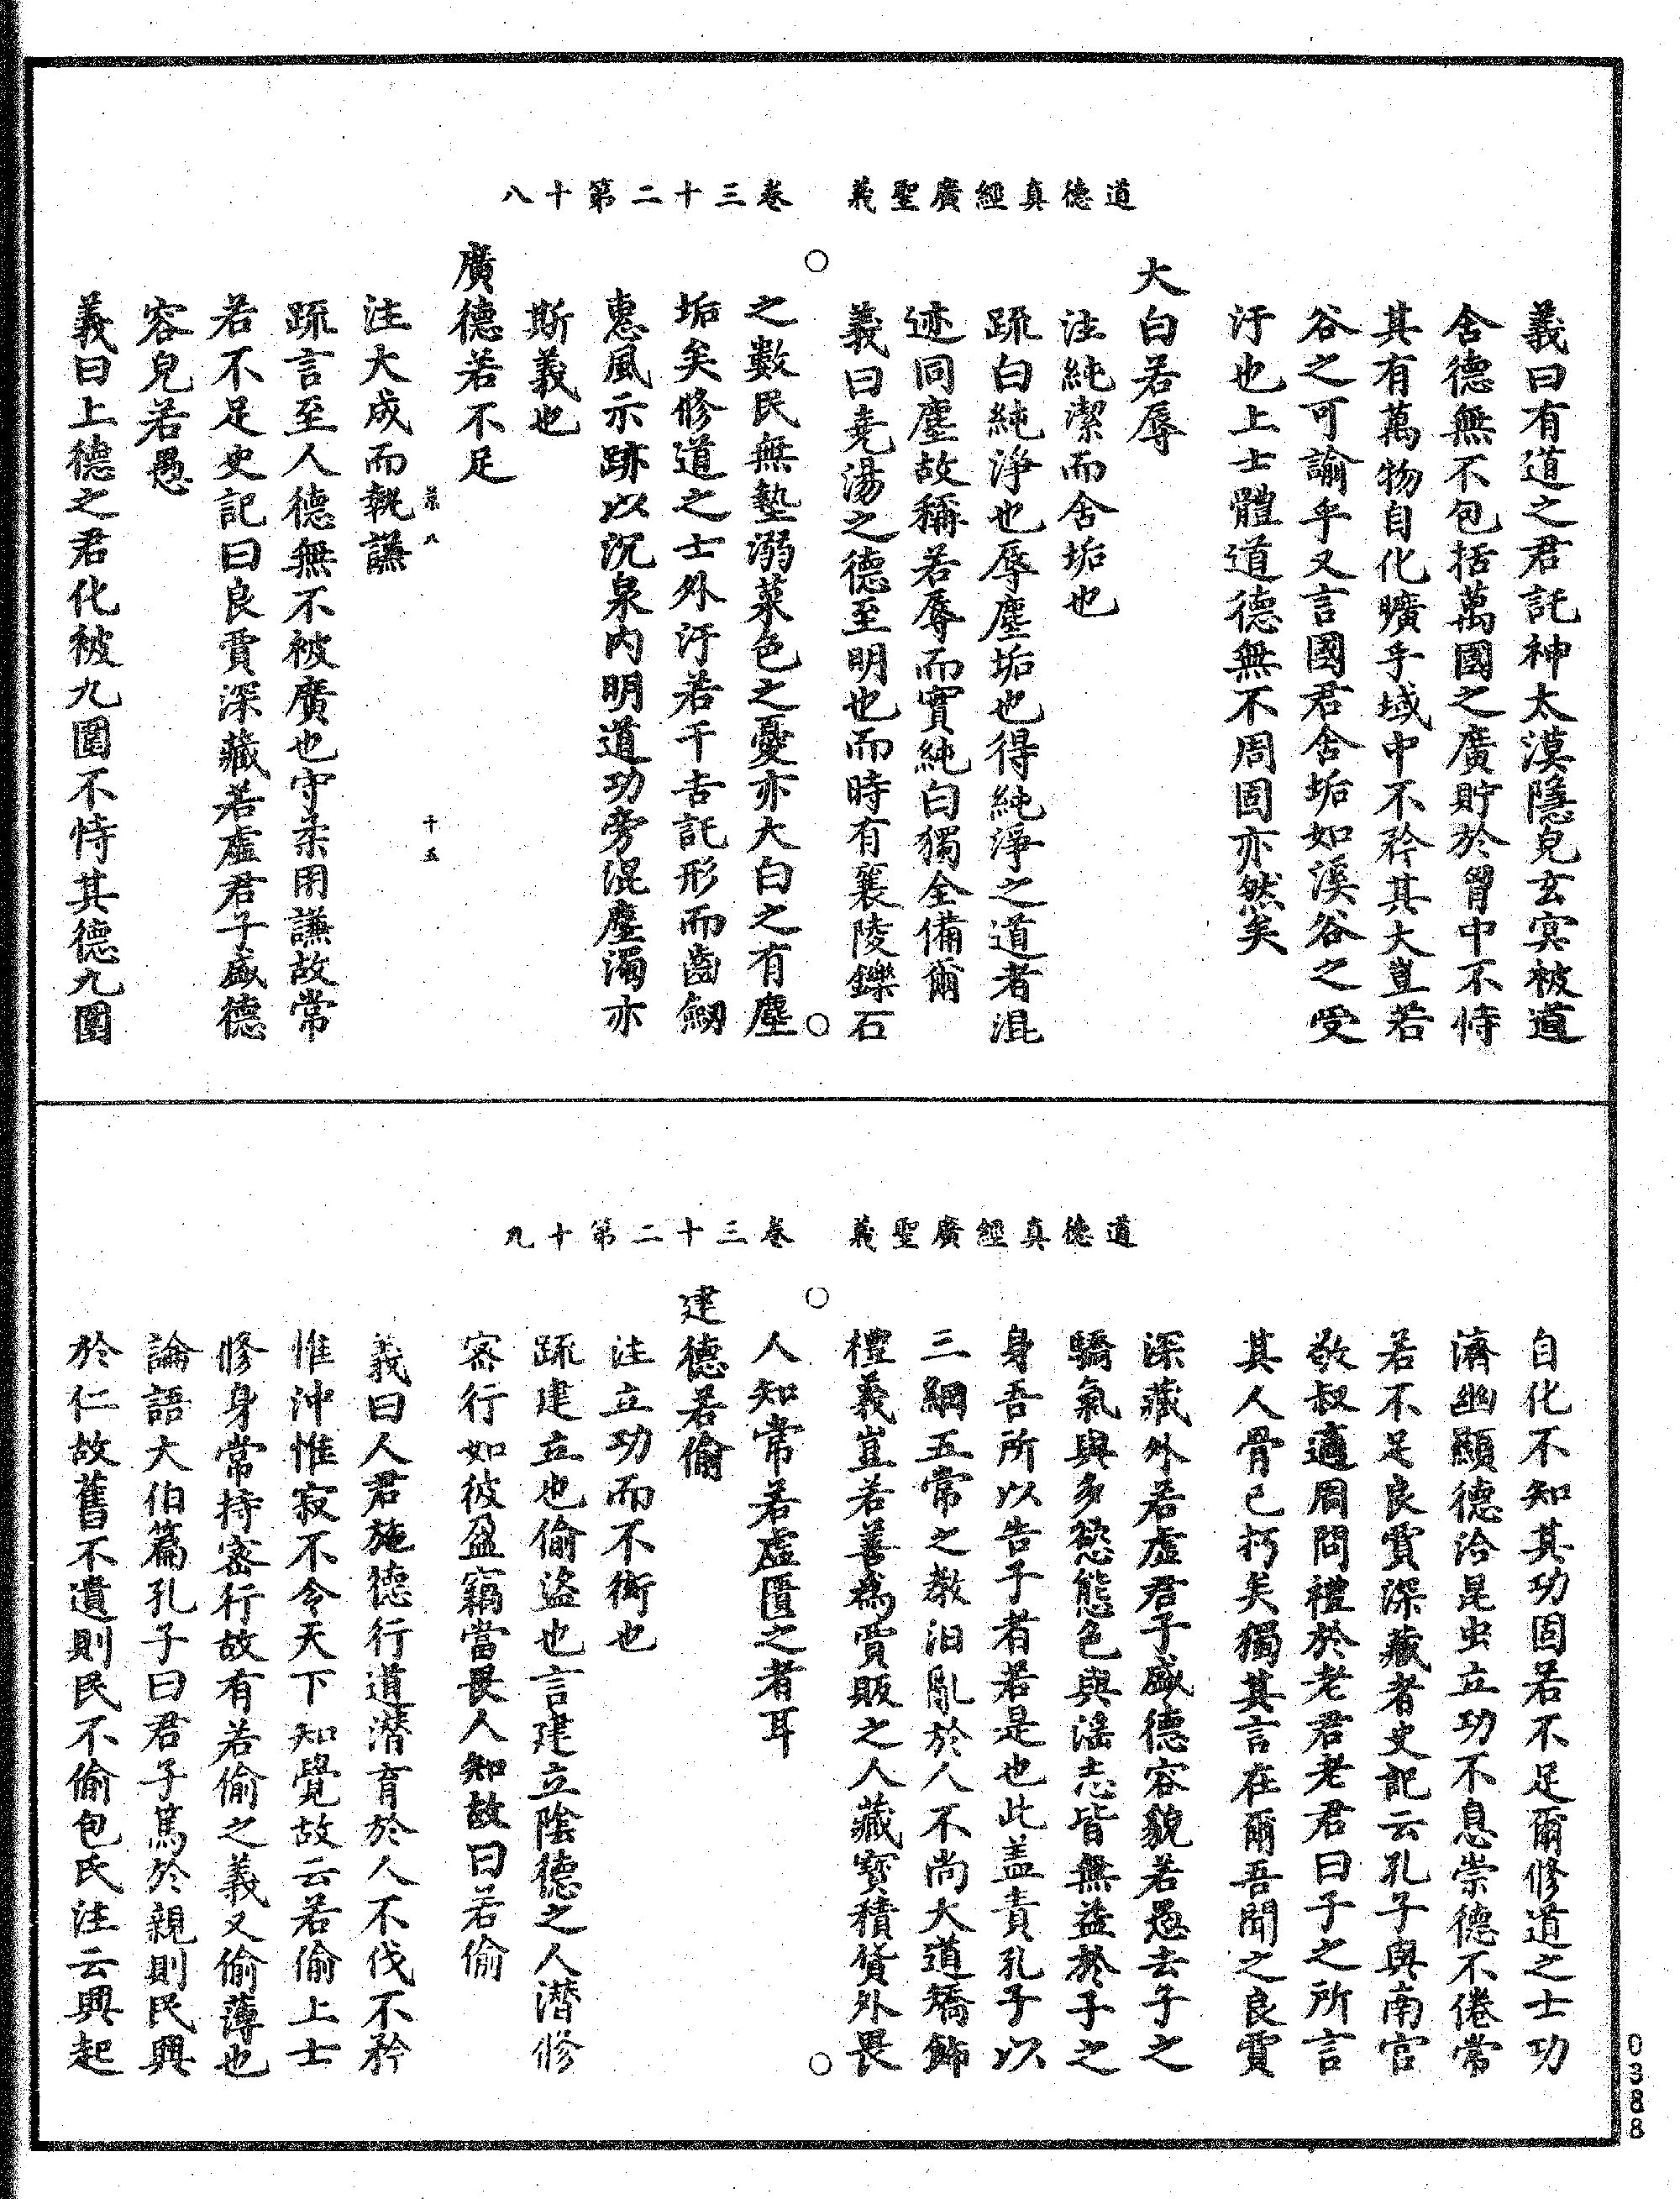 道德真經廣聖義　卷三十二第十八
義曰有道之君託神太漠隱皃玄㝠被道
含德無不包括萬國之廣貯於胷中不恃
其有萬物自化曠乎域中不矜其大豈若
谷之可諭乎又言國君含垢如溪谷之受
汙也上士體道德無不周固亦然矣
大白若辱
注純潔而含垢也
疏白純淨也辱塵垢也得純淨之道者混
迹同塵故稱若辱而實純白獨全備爾
義曰堯湯之德至明也而時有襄陵鑠石
之數民無墊溺菜色之憂亦大白之有塵
垢矣修道之士外汙若干吉託形而齒劒
惠風示跡以沉泉內明道功旁混塵濁亦
斯義也
廣德若不足
注大成而執謙
菜八　十五
疏言至人德無不被廣也守柔用謙故常
若不足史記曰良賈深藏若虛君子盛德
容皃若愚
義曰上德之君化被九圍不恃其德九圍
道德真經廣聖義　卷三十二第十九
自化不知其功固若不足爾修道之士功
濟幽顯德洽昆虫立功不息崇德不倦常
若不足良賈深藏者史記云孔子與南宮
敬叔適周問禮於老君老君曰子之所言
其人骨已朽矣獨其言在爾吾聞之良賈
深藏外若虛君子盛德容貌若愚去子之
驕氣與多慾態色與滛志皆無益於子之
身吾所以告子者若是也此盖責孔子以
三綱五常之教汨亂於人不尚大道矯飾
禮義豈若善為賈販之人藏寳積貨外畏
人知常若虛匱之者耳
建德若偷
注立功而不衒也
疏建立也偷盜也言建立陰德之人潛修
密行如彼盈竊當畏人知故曰若偷
義曰人君施德行道潛育於人不伐不矜
惟沖惟寂不令天下知覺故云若偷上士
修身常持密行故有若偷之義又偷薄也
論語大伯篇孔子曰君子篤於親則民興
於仁故舊不遺則民不偷包氏注云興起
0388